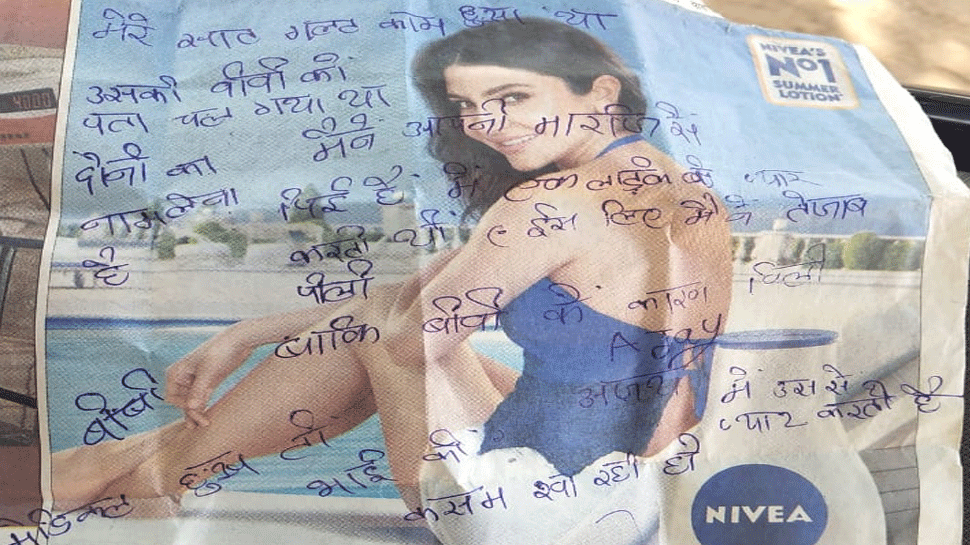 मेरे सात गलत काम हुआ था
NIVEA'S
No1
SUMMER
LOTION
4000
उसकी बीवी को
पता चल गया था
दौनो का मैंने आपनी मारजि सें
नाम लेवा पिई हैं में एक लड़के के प्यार
है करती थी ईस लिए मैंने तेजाब
पीली
बाकि बीवी के कारण पिली
Ajay
अजय में उससे
बीबी प्यार करती है
मेडिकल भाई की
कसम खा रही हो
NIVEA